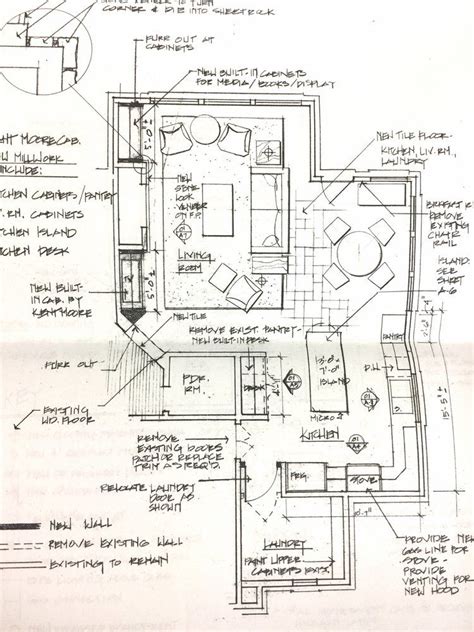 CORNER & DIE INTO SHEETROCK
FURR OUT AT
CABINETS
NEW BUILT-IN CABINETS
FOR MEDIA/BOOKS/DISPLAY
HT MOORE CAB.
W MILLWORK
INCLUDE:
TCHEN CABINETS/PANTRY
. RM. CABINETS
TCHEN ISLAND
TCHEN DESK
NEW BUILT
IN CAB. BY
KENT MOORE
FURR OUT
EXISTING
WD. FLOOR
NEW
STONE
LOOK
VENEER
ON F.P.
LIVING
ROOM
NEW TILE
REMOVE EXIST. PANTRY-
NEW BUILT-IN DESK
PDR.
RM
DESK
NEW TILE FLOOR-
KITCHEN, LIV. RM,
LAUNDRY
REMOVE
EXISTING
CHAIR
RAIL
ISLAND:
SEE
SHEET
A-6
PANTRY
D.W.
15'-5"±
7'-0"
ISLAND
MICRO
KITCHEN
REMOVE
EXISTING DOORS
PATCH OR REPLACE
TRIM AS REQ'D.
RELOCATE LAUNDRY
DOOR AS
SHOWN
STOVE
LAUNDRY
PAINT UPPER
CABINETS EXIST.
PROVIDE NEW
GAS LINE FOR
STOVE-
PROVIDE
VENTING FOR
NEW HOOD
NEW WALL
REMOVE EXISTING WALL
EXISTING TO REMAIN